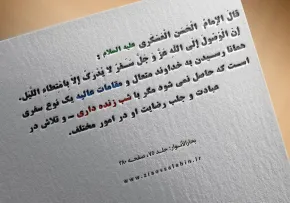 قال الإمامُ الحَسَن العَسْكَری علیه السلام :
إنَّ الوُصُولَ إلَی اللهِ عَزَّ وَ جَلَّ سَفَرٌ لا یُدرَکُ إلاّ بِامتِطاءِ اللَّیلِ.
همانا رسیدن به خداوند متعال و مقامات عالیه یک نوع سفری
است که حاصل نمی شود مگر با شب زنده داری ـ و تلاش در
عبادت و جلب رضایت او در امور مختلف.
بحارالأنوار: جلد ۷۵، صفحه ۳۸۰